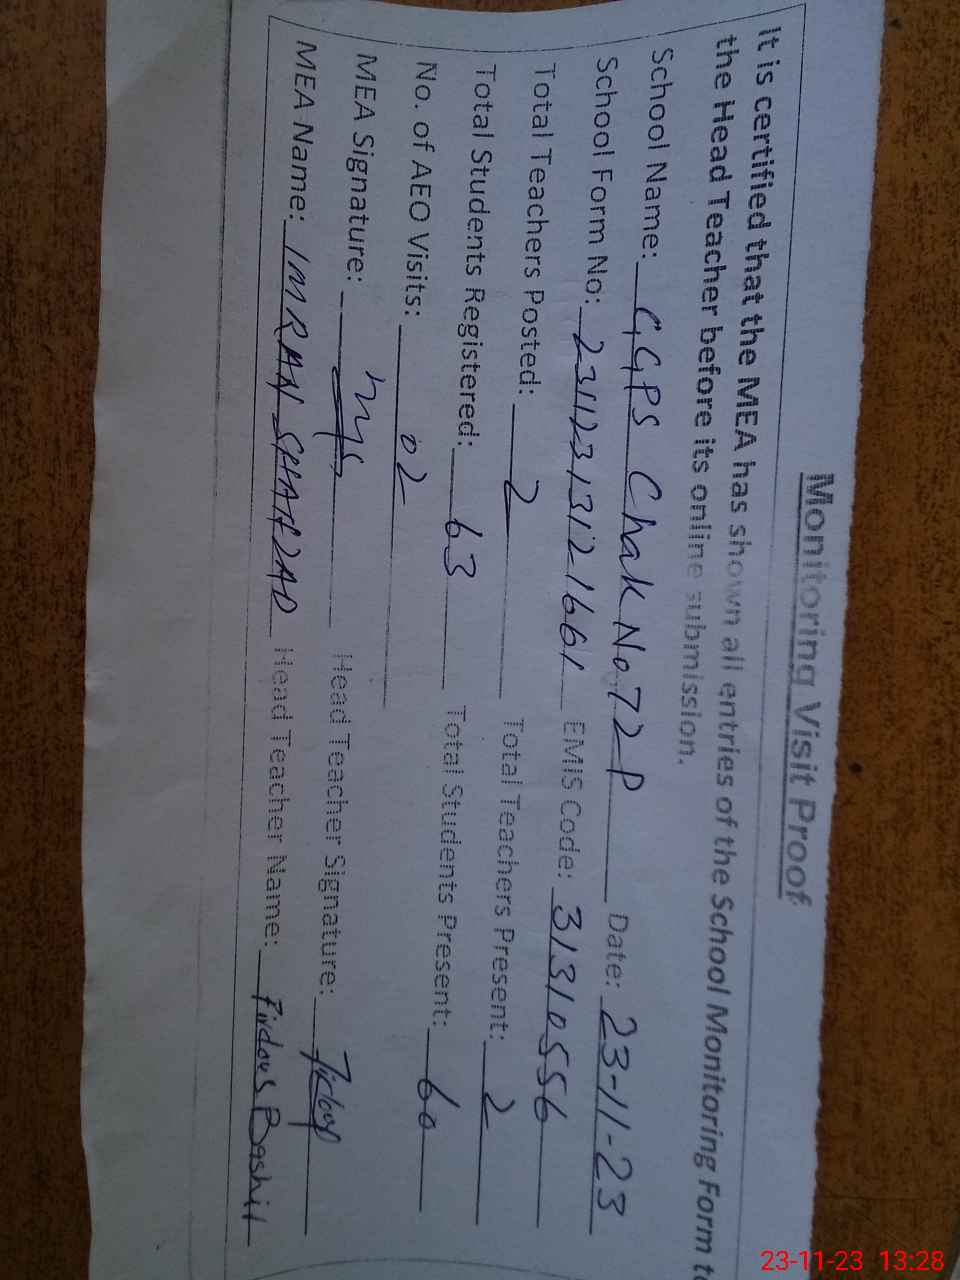 Monitoring Visit Proof
It is certified that the MEA has shown all entries of the School Monitoring Form to
the Head Teacher before its online submission.
School Name: GGPS Chak No 72 P Date: 23-11-23
School Form No: 23112313121661 EMIS Code: 31310556
Total Teachers Posted: 2 Total Teachers Present: 2
Total Students Registered: 63 Total Students Present: 60
No. of AEO Visits: 02
MEA Signature: Head Teacher Signature:
MEA Name: IMRAN SHAHZAD Head Teacher Name: Firdous Bashir
23-11-23 13:28